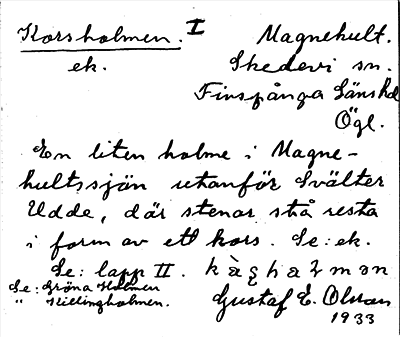 Korsholmen. I Magnehult.
ek. Skedevi sn.
Finspånga Länshd
Ögl.
En liten holme i Magne-
hultssjön utanför Svälter
Udde, där stenar stå resta
i form av ett kors. Se: ek.
Se: lapp II.
Se: Gröna Holmen
" Killingholmen. Gustaf E. Olsson
1933